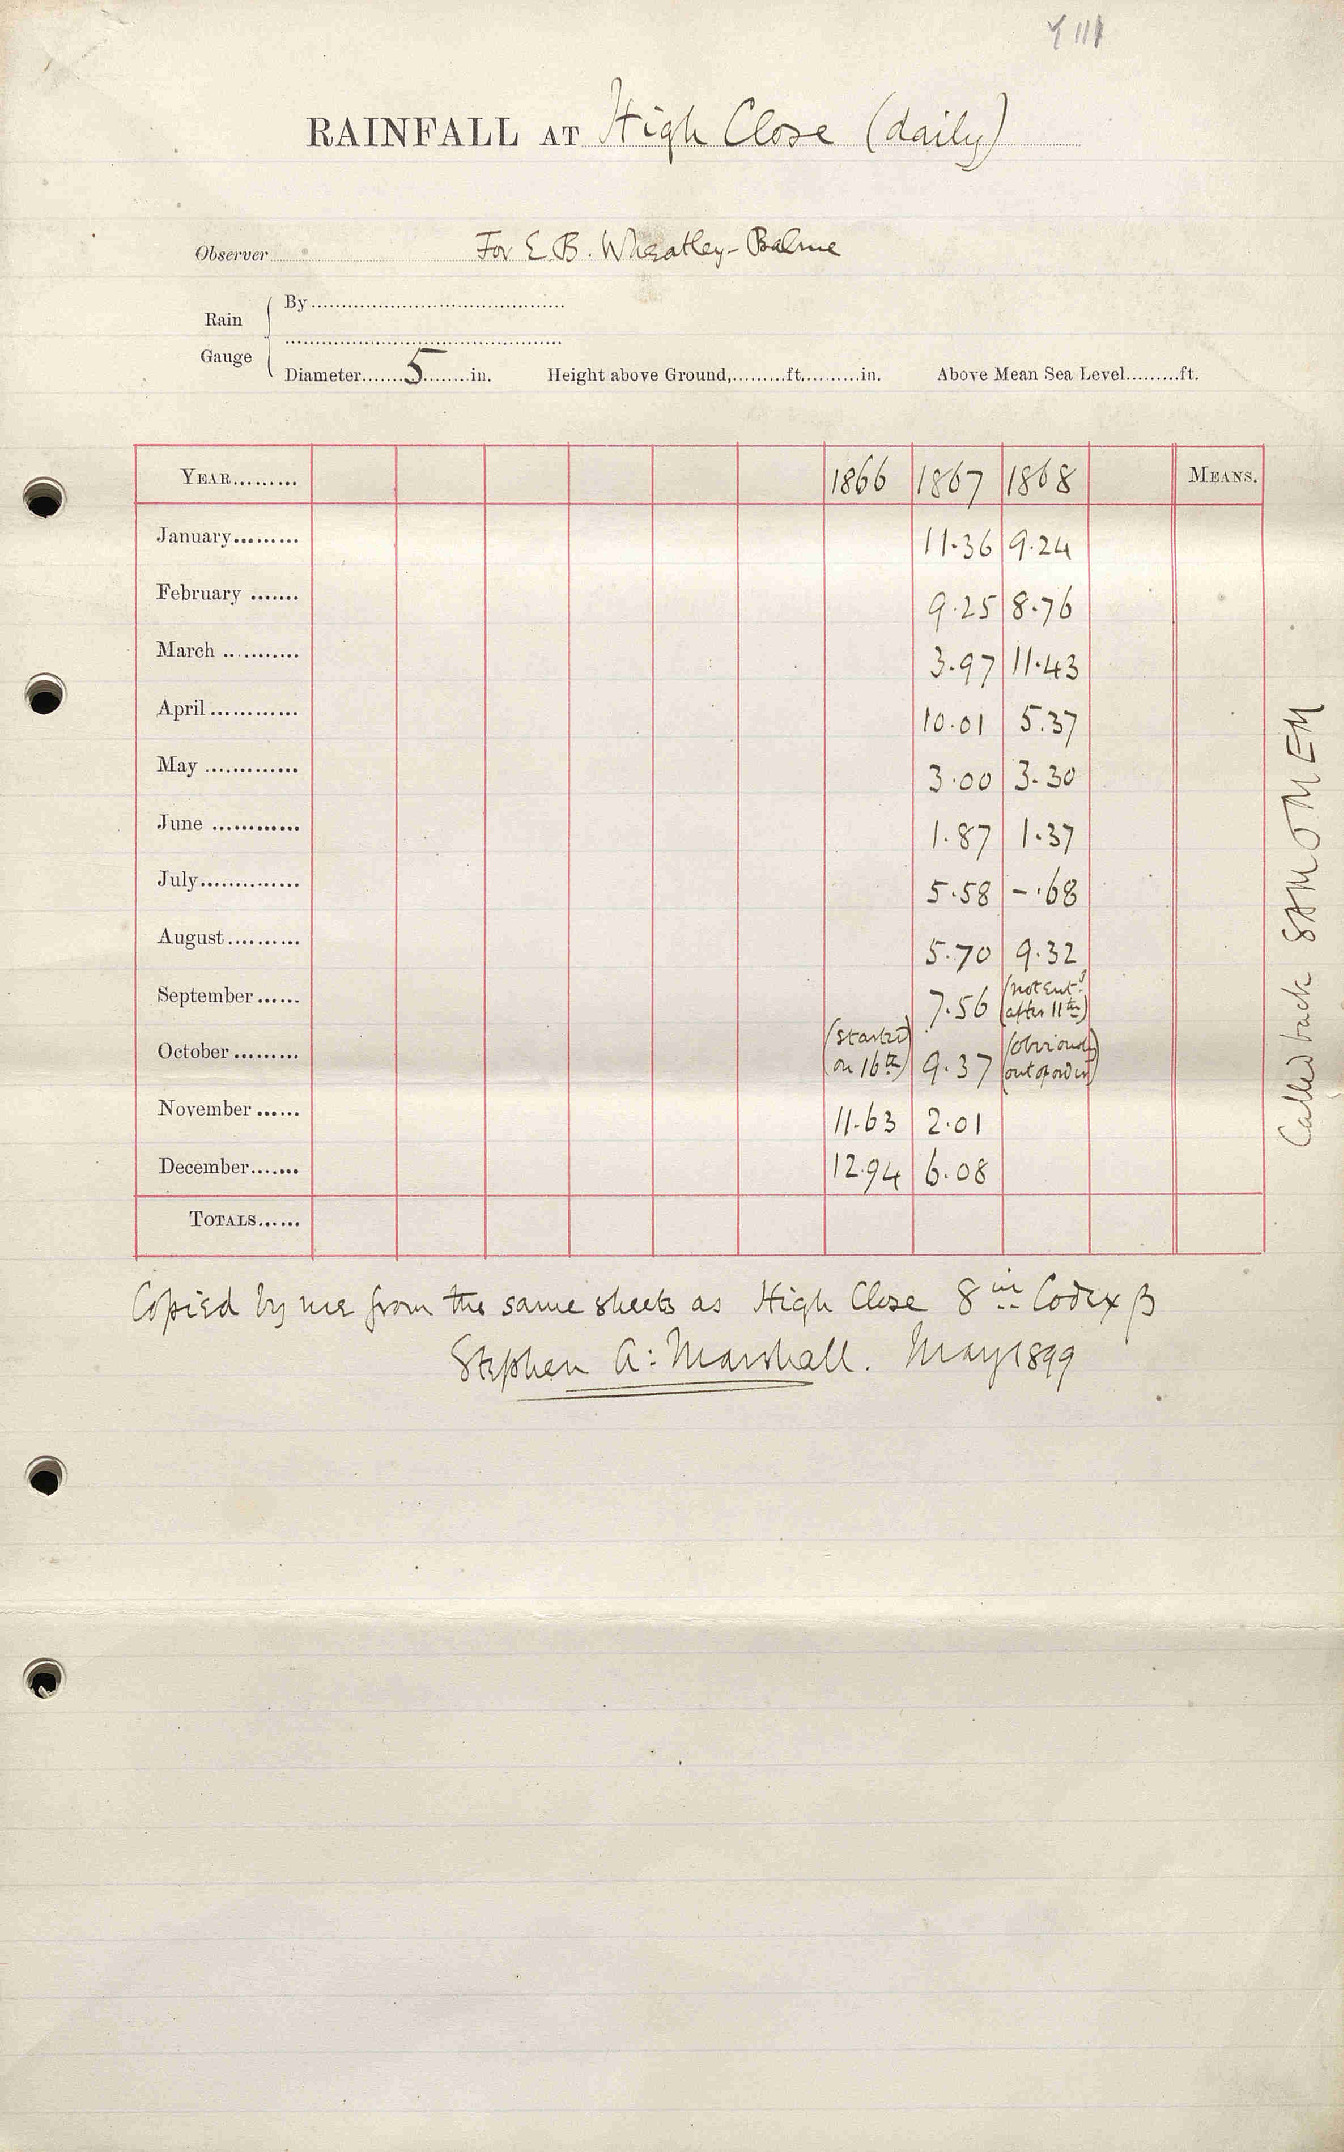 RAINFALL AT High Close (daily)
Observer For E.B. Wheatley-Balme
Rain Gauge
By
Diameter 5 in. Height above Ground, ft. in. Above Mean Sea Level ft.
YEAR 1866 1867 1868 MEANS.
January 11.36 9.24
February 9.25 8.76
March 3.97 11.43
April 10.01 5.37
May 3.00 3.30
June 1.87 1.37
July 5.58 - .68
August 5.70 9.32
September 7.56 (not entd after 11th)
October (started on 16th) 9.37 (obviously out of order)
November 11.63 2.01
December 12.94 6.08
TOTALS
Copied by me from the same sheets as High Close 8 in Codex β
Stephen A: Marshall. May 1899
Called back